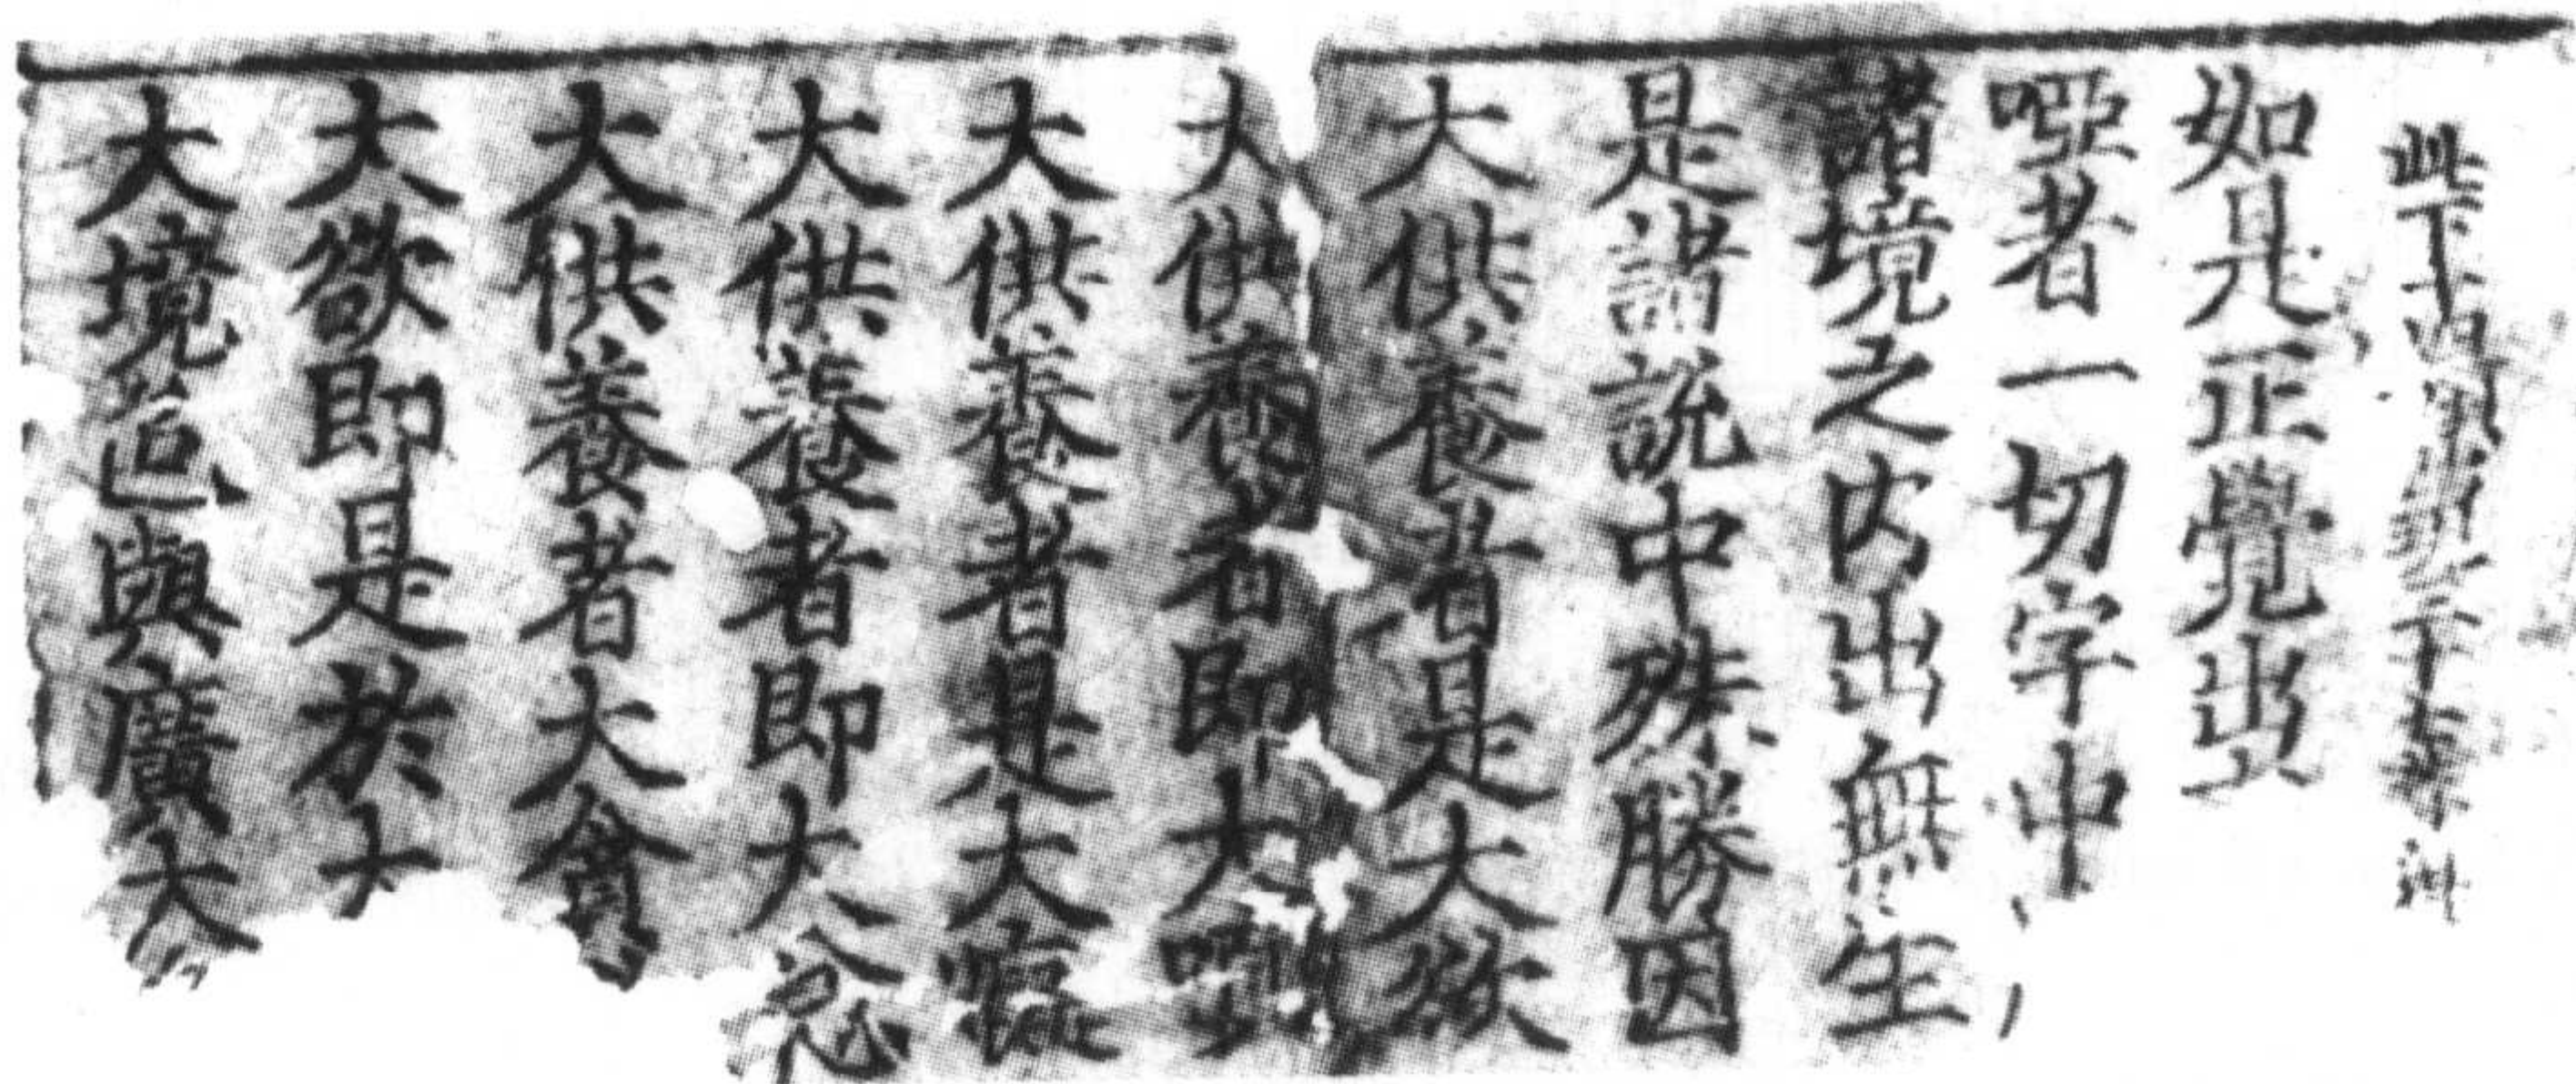 此下十四
如是正覺出
啞者一切字中
諸境之内出無生
是諸說中殊勝因
大供養者是大欲
大供養者即大嗔
大供養者是大癡
大供養者即大忿
大供養者大貪
大欲即是於大
大境色與廣大